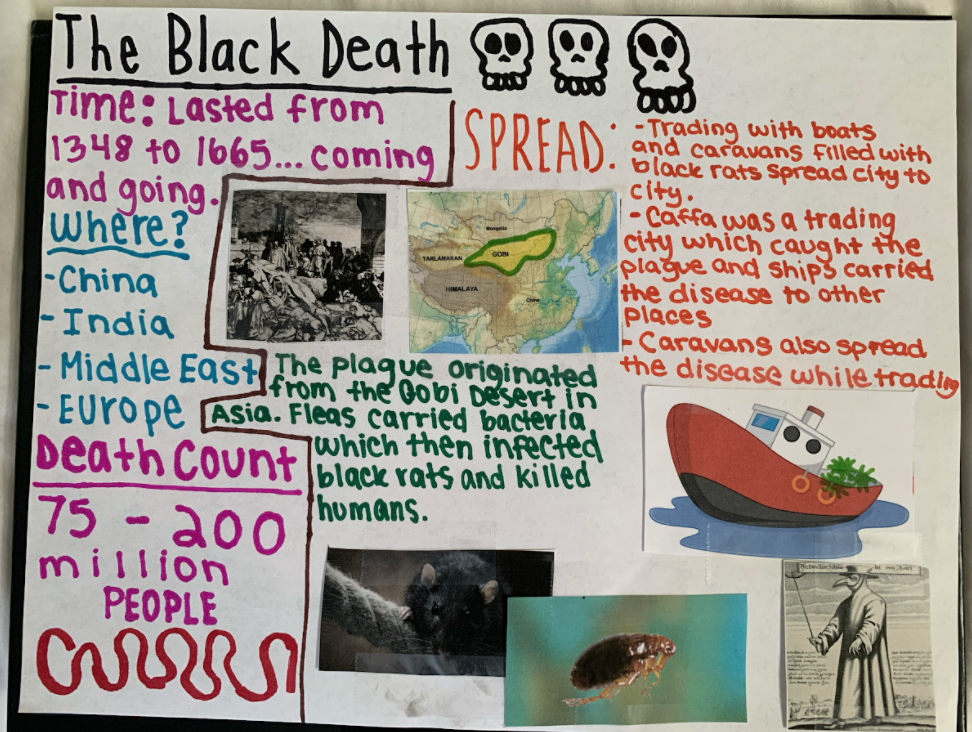 The Black Death
Time: Lasted from
1348 to 1665... coming
and going.
Where?
- China
- India
- Middle East
- Europe
Death Count
75 - 200
million
PEOPLE
SPREAD:
- Trading with boats
and caravans filled with
black rats spread city to
city.
- Caffa was a trading
city which caught the
plague and ships carried
the disease to other
places
- Caravans also spread
the disease while trading
Mongolia
TAKLAMAKAN
GOBI
HIMALAYA
China
The plague originated
from the Gobi Desert in
Asia. Fleas carried bacteria
which then infected
black rats and killed
humans.